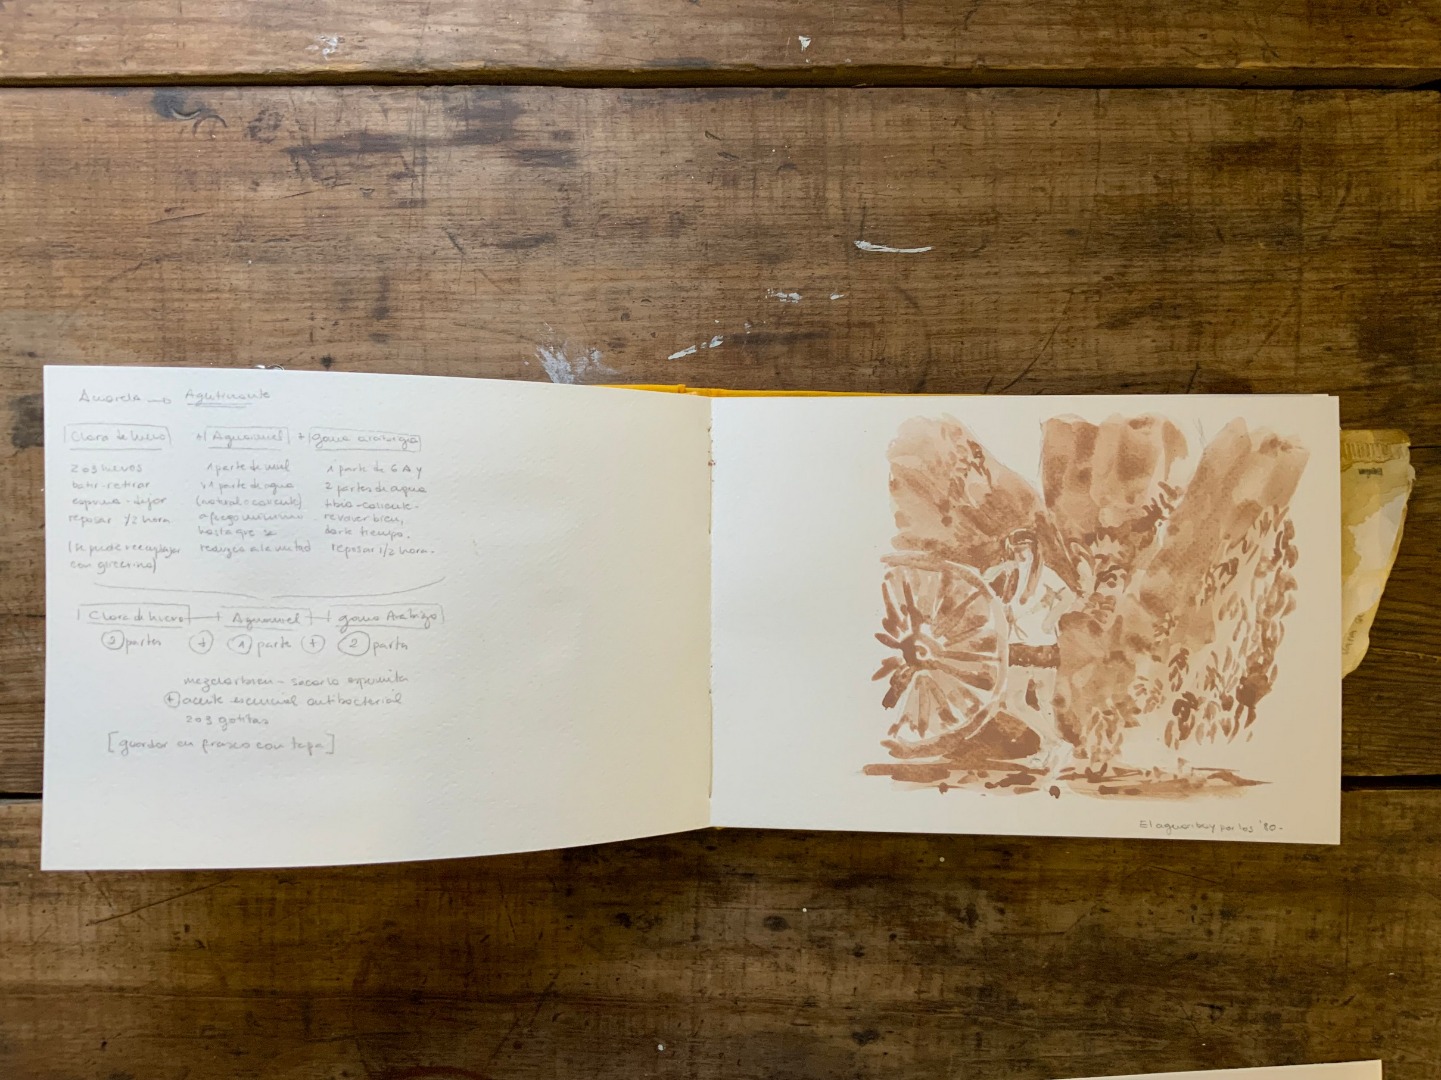 Acuarela → Aglutinante
Clara de huevo + Aguamiel + goma arábiga
2 o 3 huevos
batir - retirar
espuma - dejar
reposar 1/2 hora
(se puede reemplazar
con glicerina)
1 parte de miel
+ 1 parte de agua
(natural o caliente)
a fuego mínimo
hasta que se
reduzca a la mitad
1 parte de G A y
2 partes de agua
tibia-caliente-
revolver bien,
darle tiempo.
reposar 1/2 hora.
Clara de huevo + Aguamiel + goma Arábiga
2 partes + 1 parte + 2 partes
mezclar bien - sacar la espumita
+ aceite esencial antibacterial
2 o 3 gotitas
[guardar en frasco con tapa]
El aguaribay por los '80-